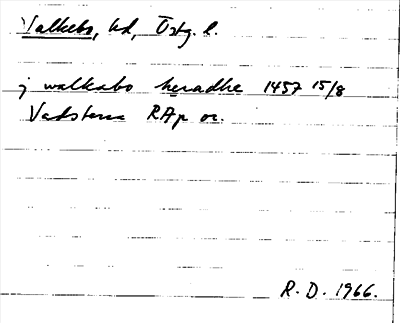 Valkebo, hd, Östg. l.
j walkabo heradhe 1457 15/8
Vadstena RAp or.
R. D. 1966.